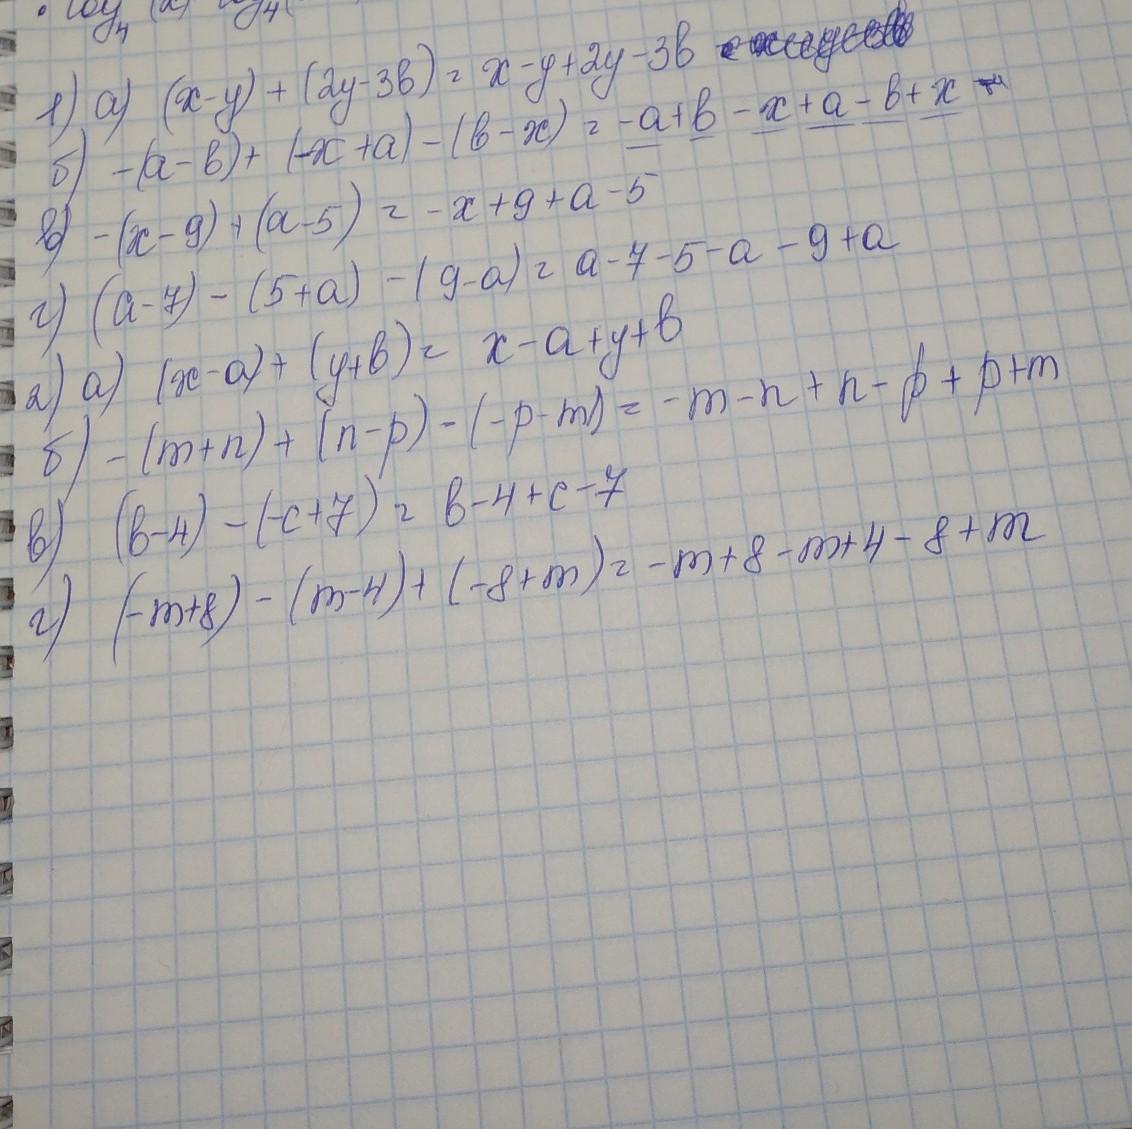 1) а) (x-y) + (2y-3в) = x-y+2y-3в
б) -(a-в)+ (-x+a) -(в-x) = -a+в -x+a-в+x
в) -(x-9)+(a-5) = -x+9+a-5
г) (a-7) - (5+a) -(9-a) = a-7-5-a-9+a
2) а) (x-a)+ (y+в) = x-a+y+в
б) -(m+n)+ (n-p) -(-p-m) = -m-n+n-p+p+m
в) (в-4) -(-c+7) = в-4+c-7
г) (-m+8) - (m-4)+ (-8+m) = -m+8-m+4-8+m